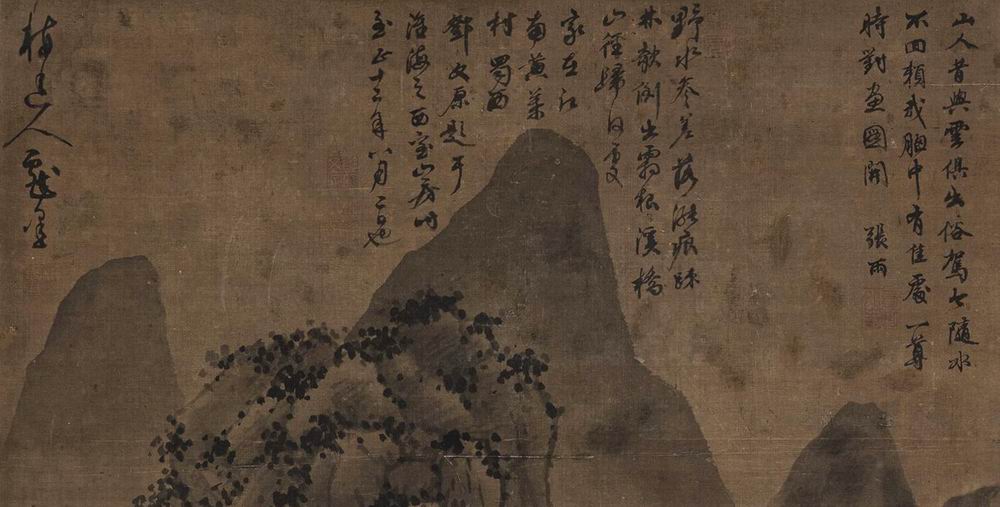 山人昔與雲俱出俗駕今隨水
不回賴我胸中有佳處一尊
時對畫圖開 張雨
野水參差落漲痕疎
林欹倒出霜根溪橋
山徑歸何處
家在江
南黃葉
村 蜀西
鄧文原題于
淮海之西室山房時
至正十二年八月二日也
梅道人戲墨